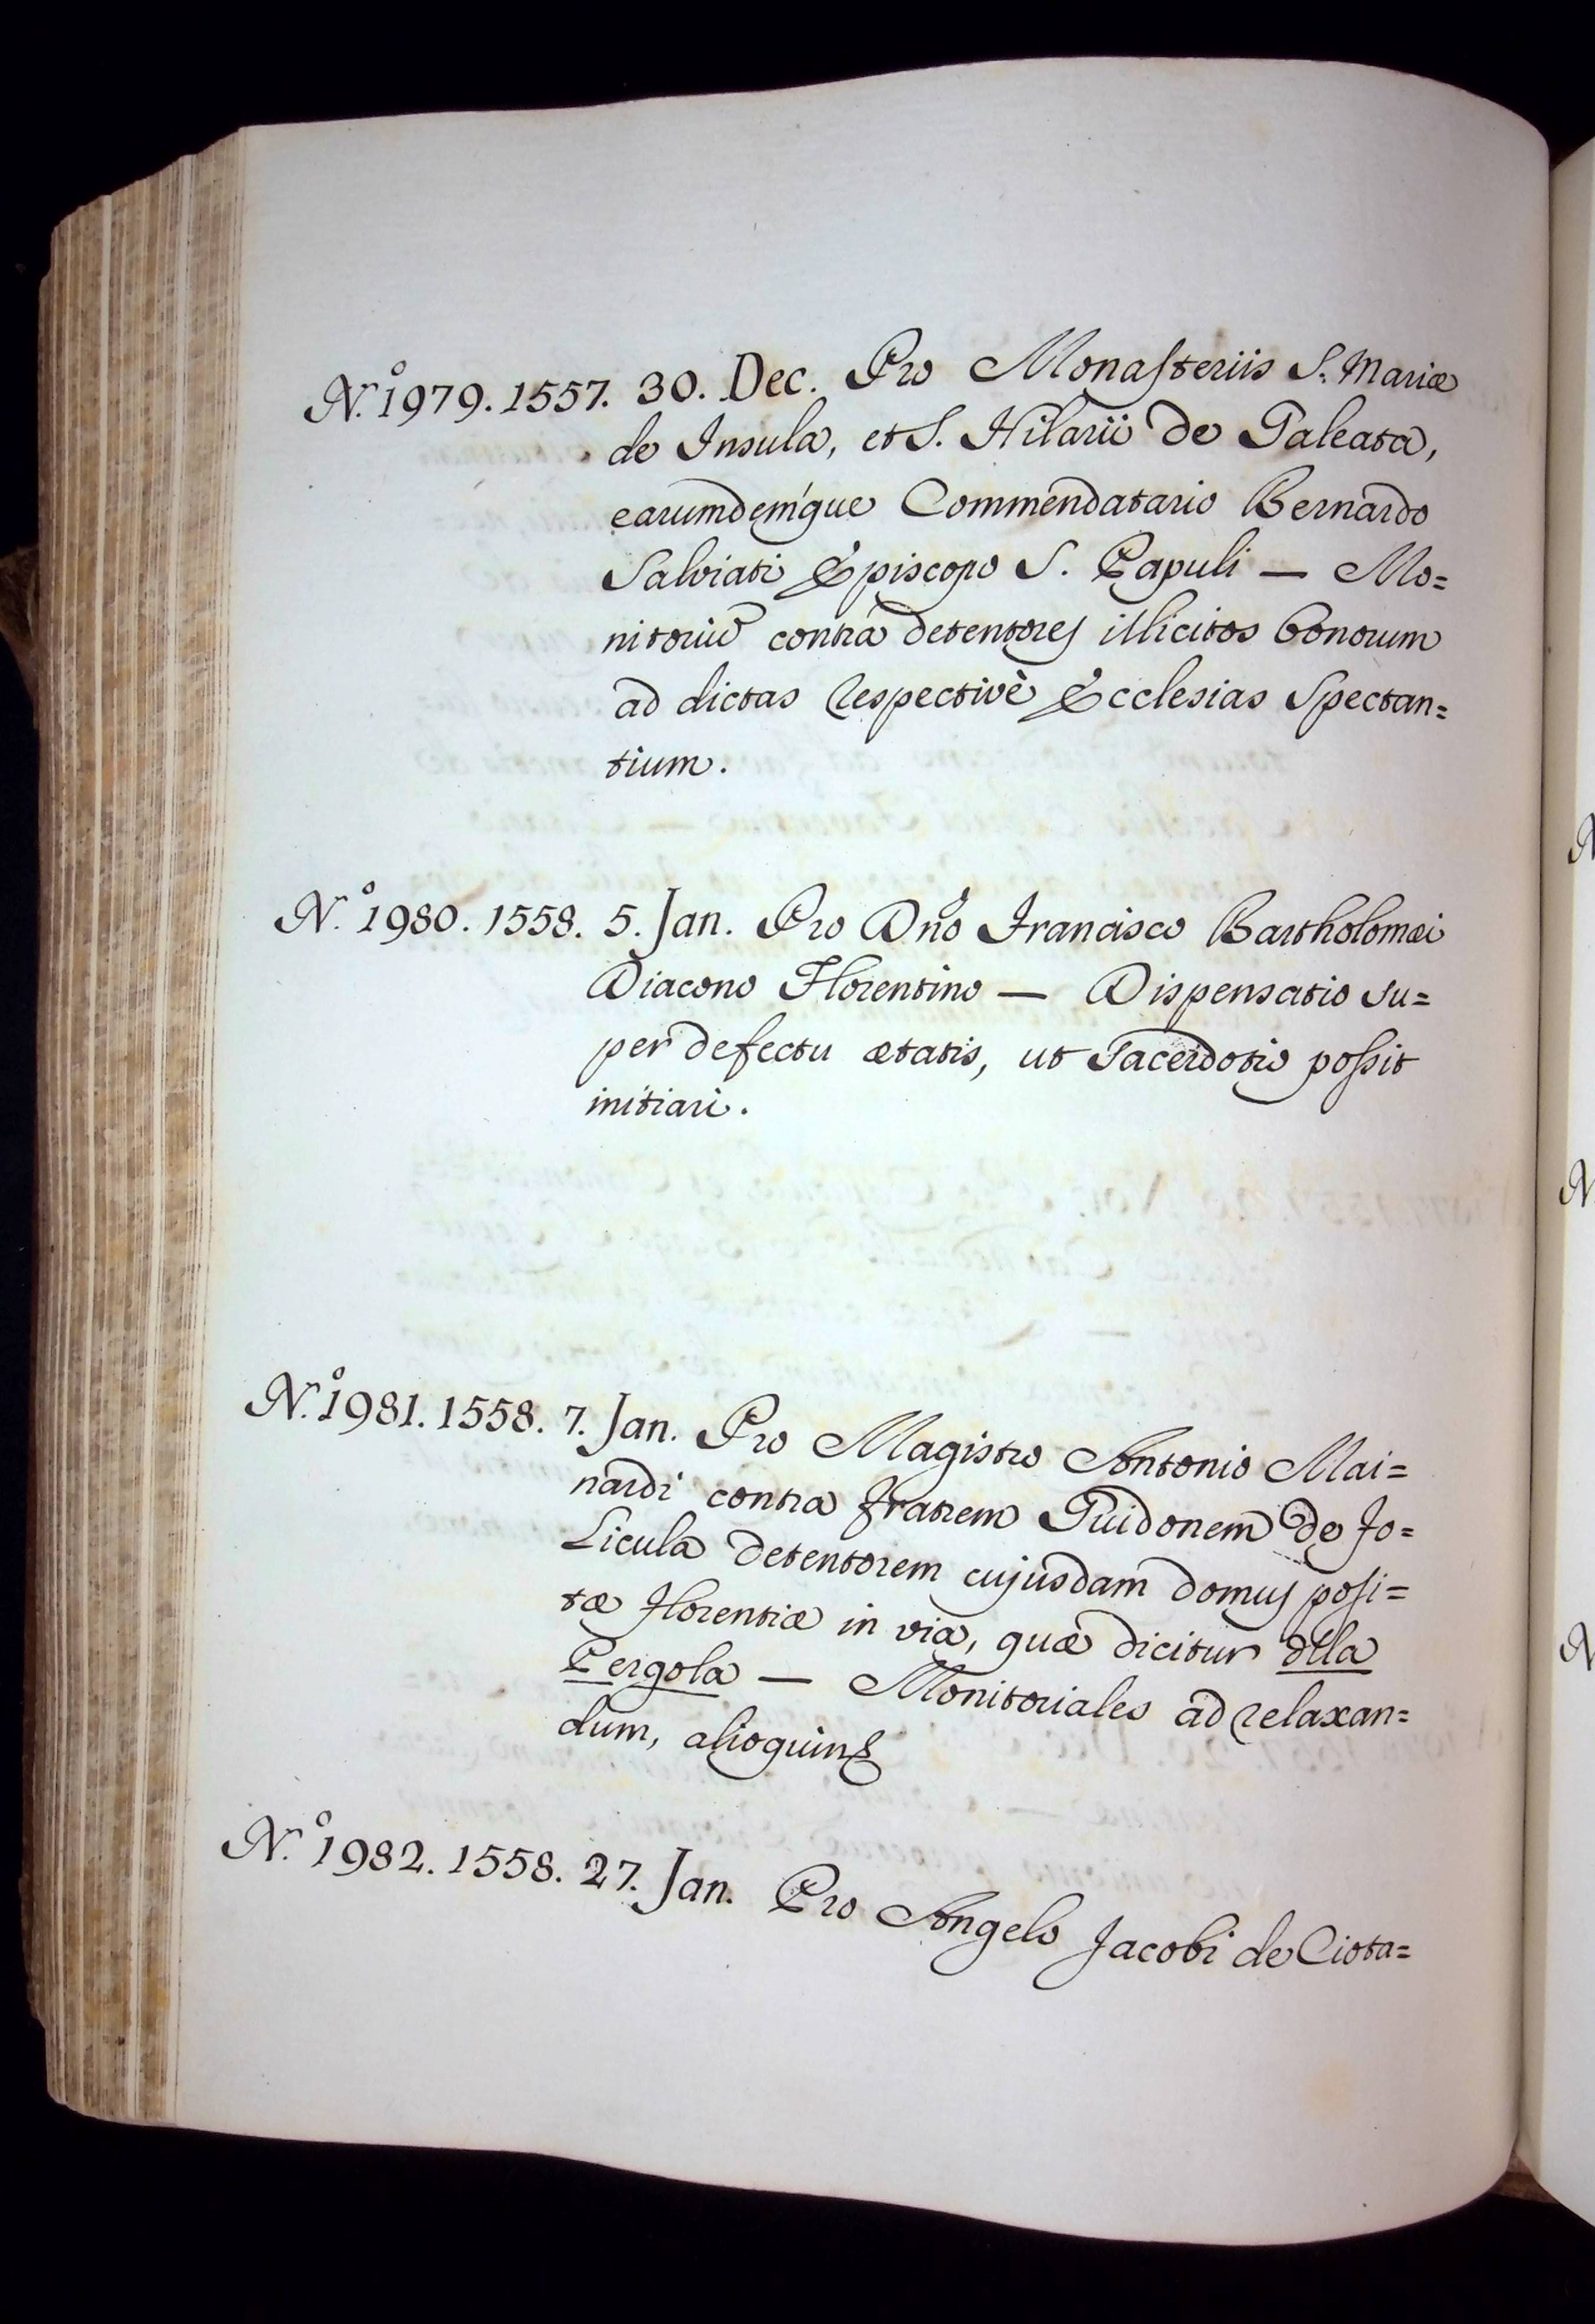 N.º 1979. 1557. 30. Dec. Pro Monasteriis S. Mariæ
de Insula, et S. Hilarii de Galeata,
earumdemque Commendatario Bernardo
Salviati Episcopo S. Papuli — Mo=
nitoriũ contra detentores illicitos bonorum
ad dictas respectivè Ecclesias Spectan=
tium.
N.º 1980. 1558. 5. Jan. Pro Dño Francisco Bartholomæi
Diacono Florentino — Dispensatio su=
per defectu ætatis, ut Sacerdotio possit
initiari.
N.º 1981. 1558. 7. Jan. Pro Magistro Antonio Mai=
nardi contra fratrem Guidonem de Fo=
Licula detentorem cujusdam domus posi=
tæ Florentiæ in via, quæ dicitur dlla
Pergola — Monitoriales ad relaxan=
dum, alioquin &
N.º 1982. 1558. 27. Jan. Pro Angelo Jacobi de Ciota=